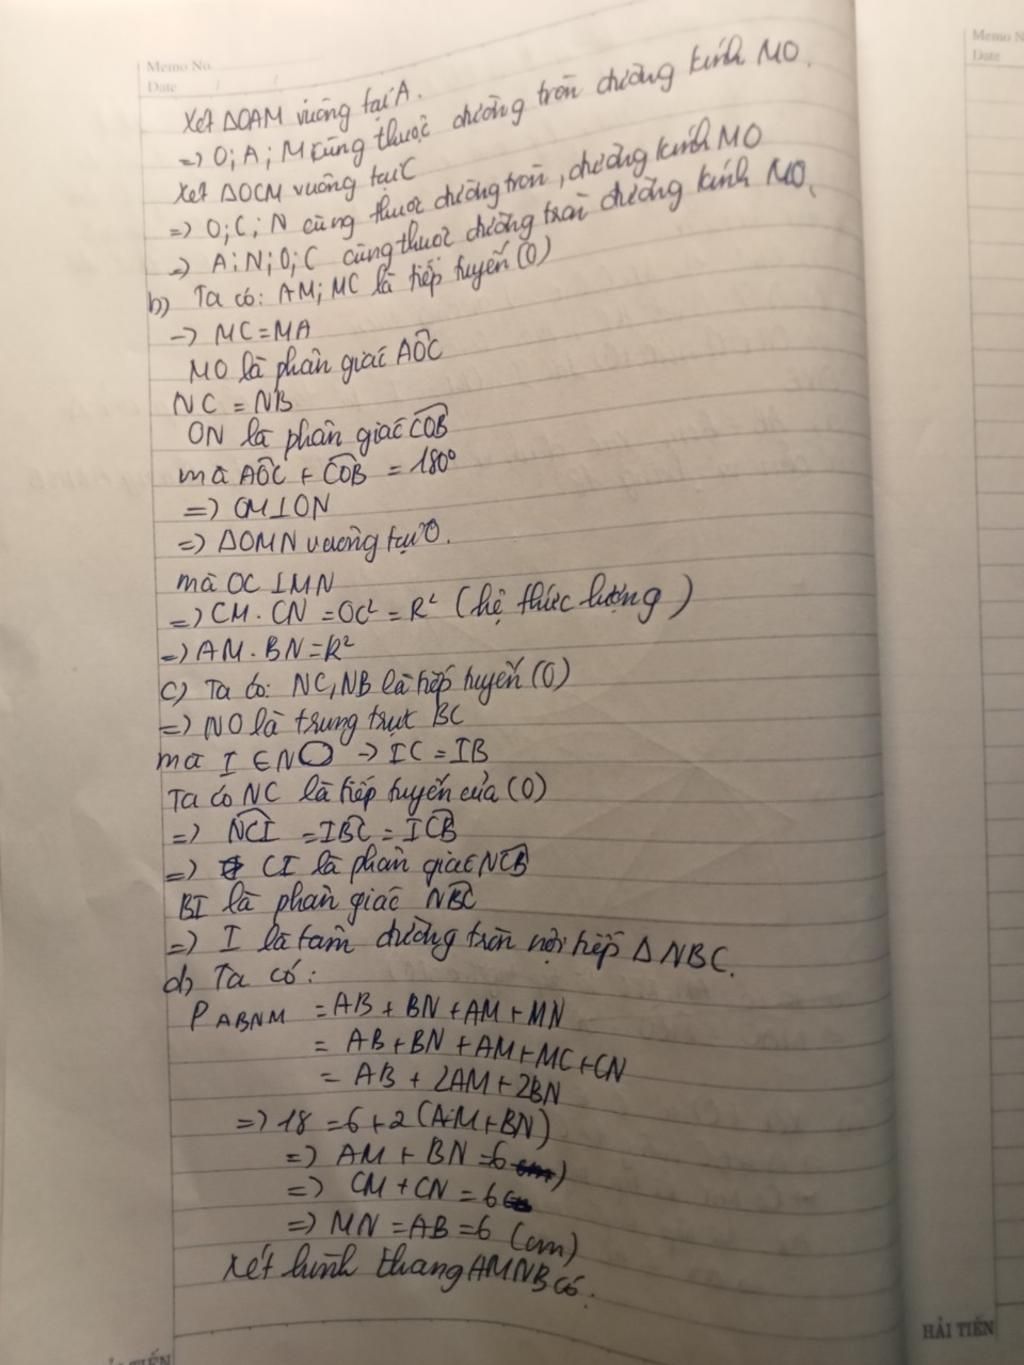 Memo No.
Date / /
Xét ΔOAM vuông tại A.
=> O; A; M cùng thuộc đường tròn đường kính MO.
Xét ΔOCM vuông tại C
=> O; C; N cùng thuộc đường tròn, đường kính MO
=> A; N; O; C cùng thuộc đường tròn đường kính MO.
b) Ta có: AM; MC là tiếp tuyến (O)
-> MC = MA
MO là phân giác AÔC
NC = NB
ON là phân giác CÔB
mà AÔC + CÔB = 180°
=> OM⊥ON
=> ΔOMN vuông tại O.
mà OC ⊥MN
=> CM . CN = OC² = R² (hệ thức lượng)
=> AM . BN = R²
c) Ta có: NC, NB là tiếp tuyến (O)
=> NO là trung trực BC
mà I ∈ NO -> IC = IB
Ta có NC là tiếp tuyến của (O)
=> NĈI = IB̂C = IĈB
=> CI là phân giác NĈB
BI là phân giác NB̂C
=> I là tâm đường tròn nội tiếp Δ NBC.
d) Ta có:
P ABNM = AB + BN + AM + MN
= AB + BN + AM + MC + CN
= AB + 2AM + 2BN
=> 18 = 6 + 2 (AM + BN)
=> AM + BN = 6
=> CM + CN = 6
=> MN = AB = 6 (cm)
Xét hình thang AMNB có.
HẢI TIẾN
Memo N
Date
HẢI TIẾN